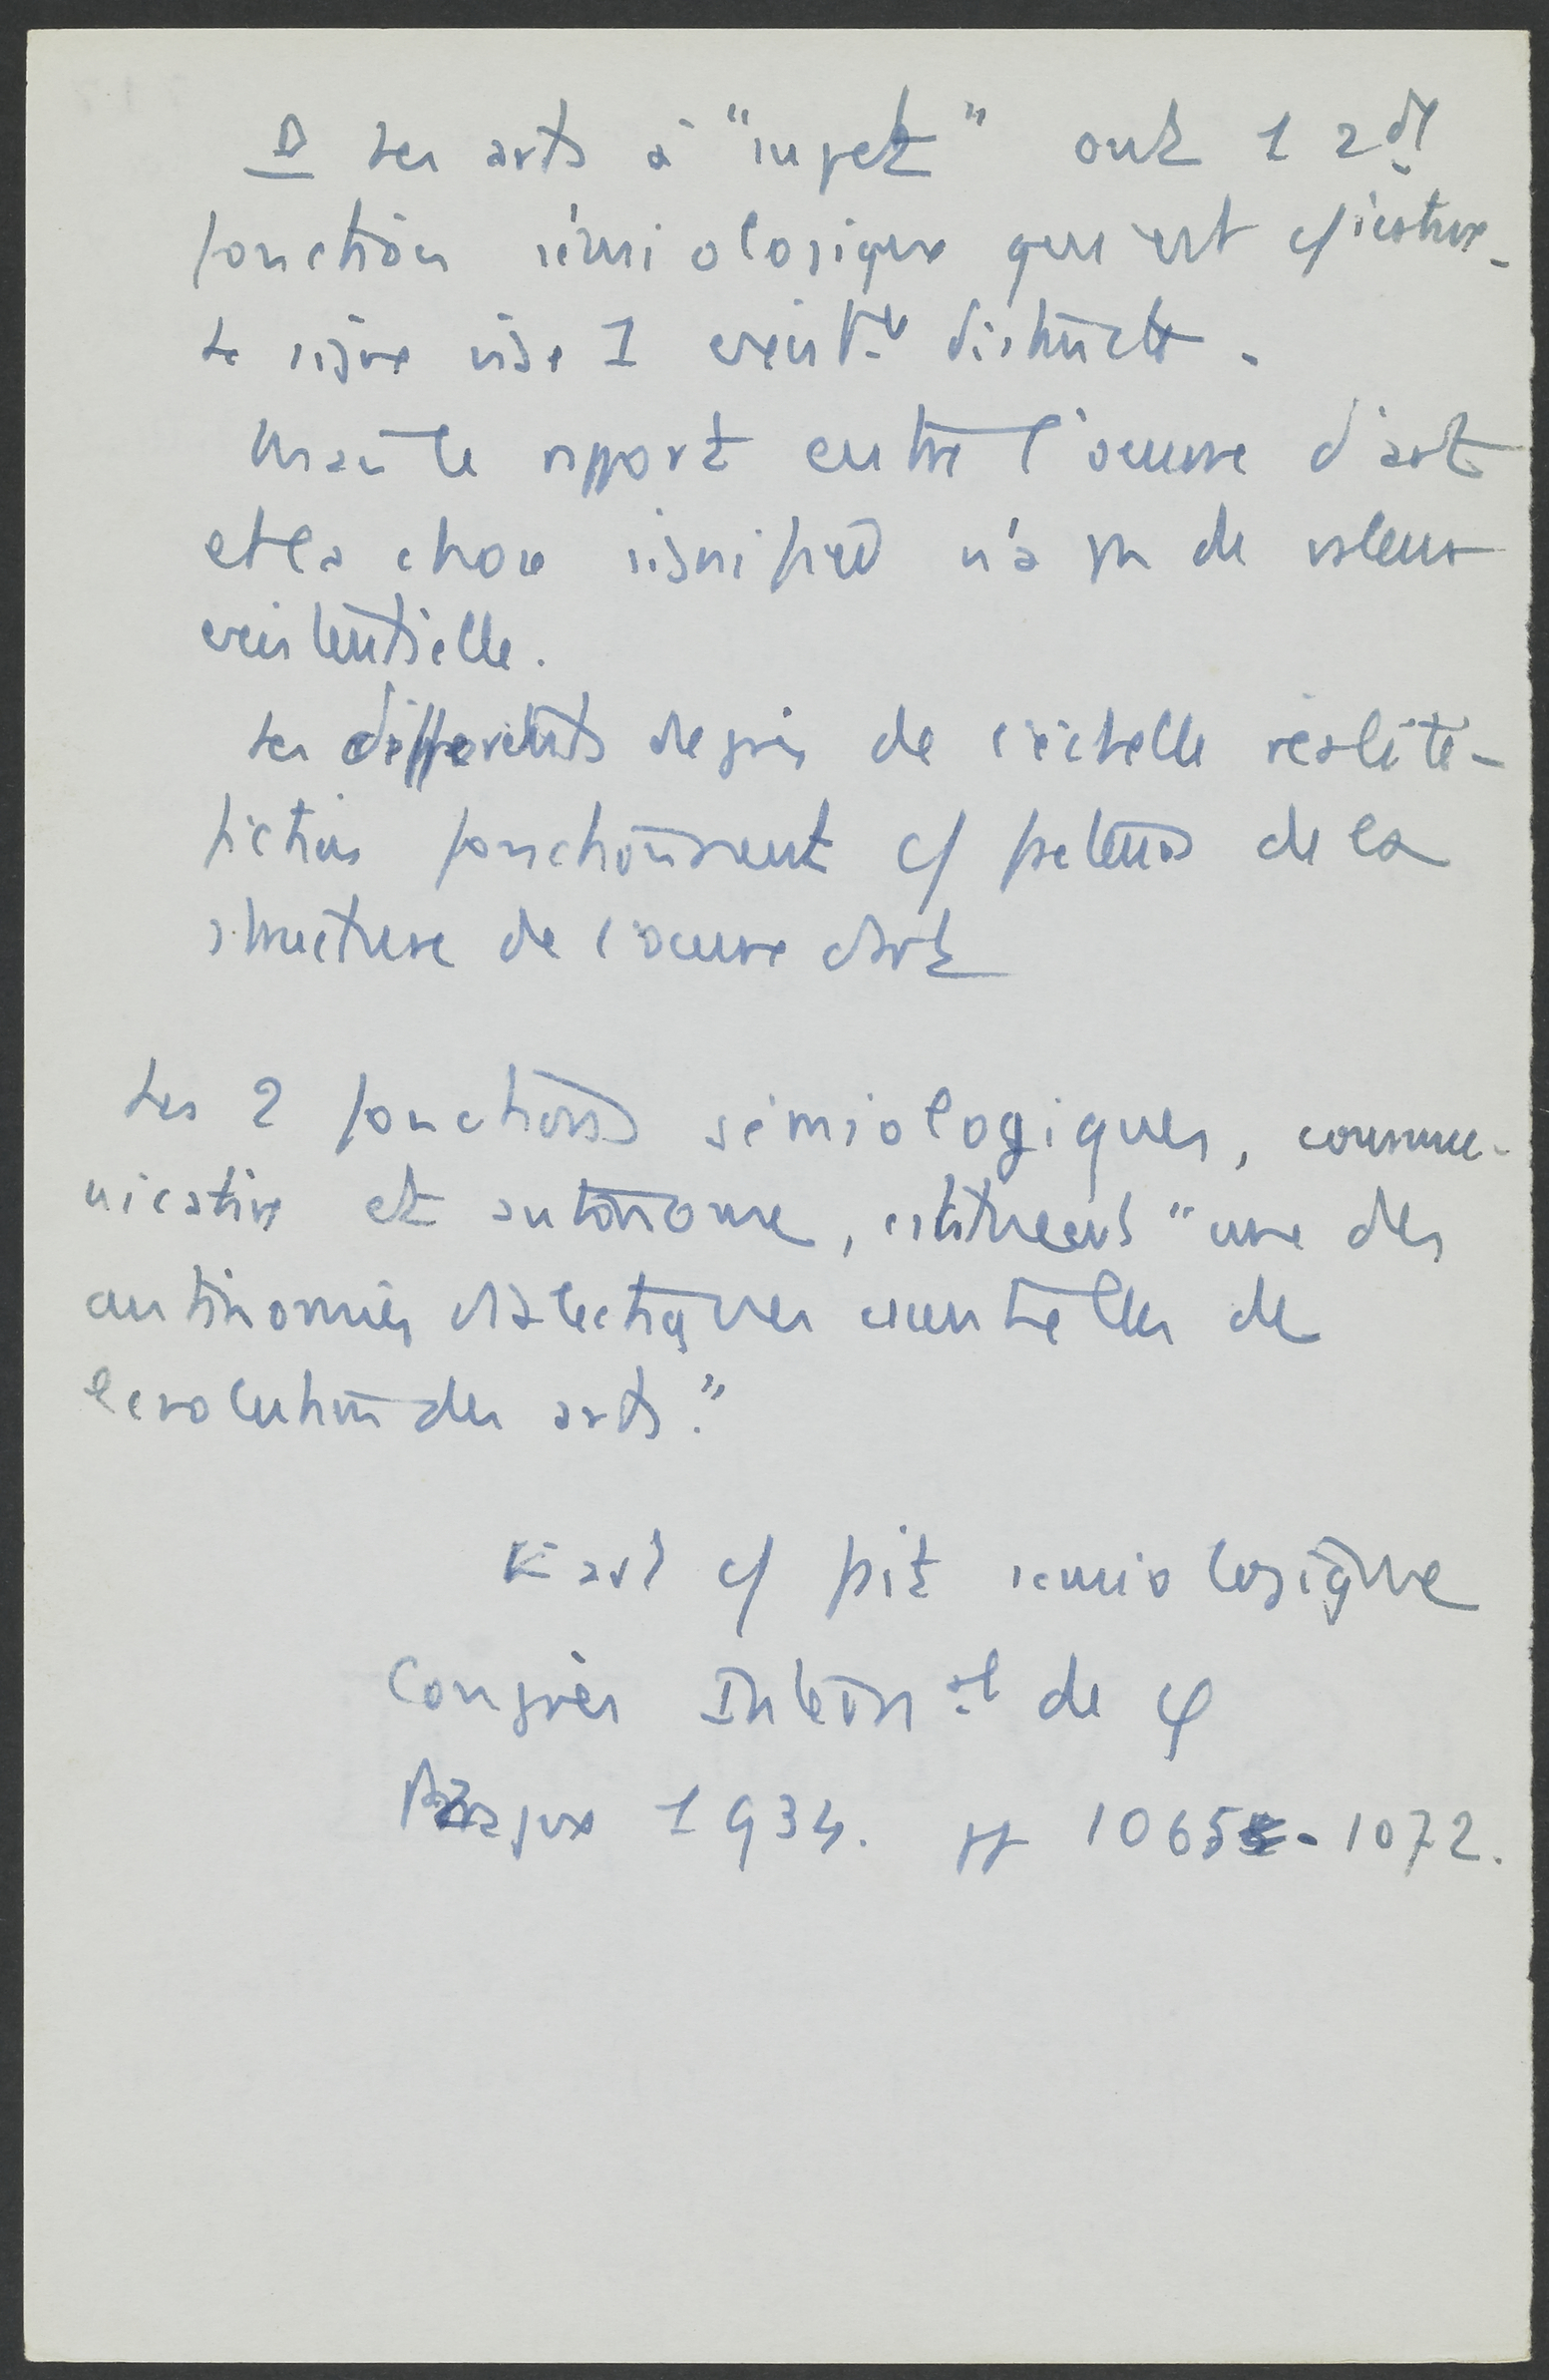 D Les arts à "sujet" ont 1 2de
fonction sémiologique qui est c/icative.
Le signe vise 1 exist.ce distincte.
Mais le rapport entre l'oeuvre d'art
et la chose signifiée n'a pas de valeur
existentielle.
Les différents degrés de l'échelle réalité-
fiction fonctionnent c/ facteurs de la
structure de l'oeuvre d'art
Les 2 fonctions sémiologiques, commu-
nicative et autonome, constituent "une des
antinomies dialectiques essentielles de
l'evolution des arts."
L'art c/ fait semiologique
Congrès Intern.al de φ
Prague 1934. pp 1065-1072.